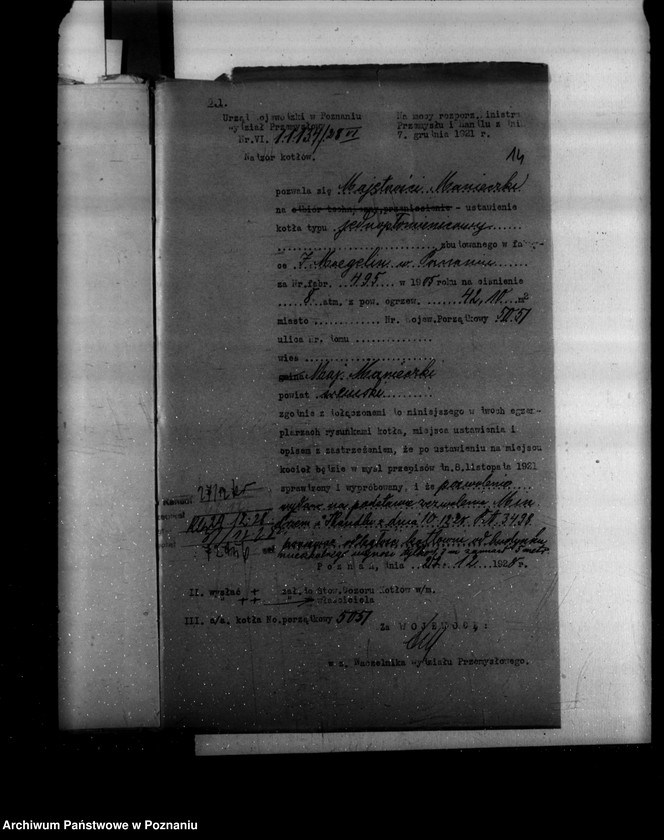 Urząd Wojewódzki w Poznaniu
Wydział Przemysłowy
Nr.VI. 11137/28 VI
Nadzór kotłów.
Na mocy rozporz. Ministra
Przemysłu i Handlu z dnia
7. grudnia 1921 r.
14
pozwala się Majętności Manieczki
na - ustawienie
kotła typu jednopłomienicowy
zbudowanego w fabry-
ce J. Maegelin w Poznaniu
za Nr.fabr. 495 w 1905 roku na ciśnienie
8 atm. z pow. ogrzew. 42,10 m2
miasto ............ Nr. Wojew.Porządkowy 5051
ulica Nr. domu ..............
wieś ........................
gmina Maj. Manieczki
powiat
zgodnie z dołączonemi do niniejszego w dwóch egzem-
plarzach rysunkami kotła, miejsca ustawienia i
opisem z zastrzeżeniem, że po ustawieniu na miejscu
kocioł będzie w myśl przepisów dn.8.listopada 1921
sprawdzony i wypróbowany, i że pozwolenie
na podstawie zezwolenia Min
i Handlu z dnia 10.12.28
Poznań, dnia 27. 12 1928 r.
II. wysłać + zał. do Stow.Dozoru Kotłów w/m.
++ właściciela
III. a/a. kotła No.porządkowy 5051
Za WOJEWODĘ:
w z. Naczelnika Wydziału Przemysłowego.
Archiwum Państwowe w Poznaniu